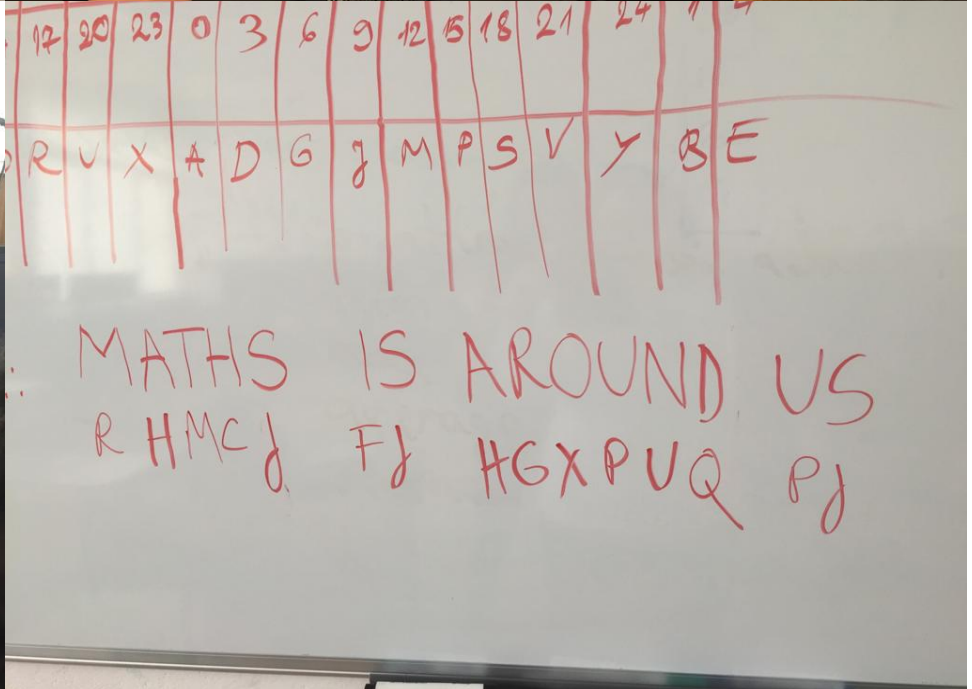 17 20 23 0 3 6 9 12 15 18 21 24 1 4
R U X A D G J M P S V Y B E
MATHS IS AROUND US
R HMCJ FJ HGXPUQ PJ